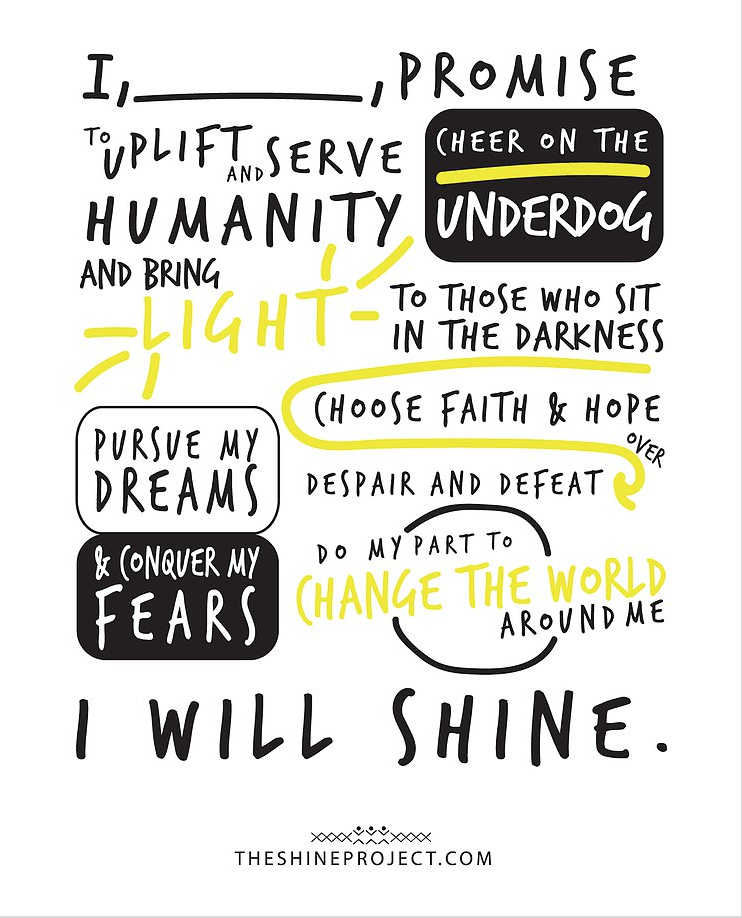 I, ____________, PROMISE
TO UPLIFT AND SERVE
HUMANITY
CHEER ON THE
UNDERDOG
AND BRING
LIGHT
TO THOSE WHO SIT
IN THE DARKNESS
CHOOSE FAITH & HOPE
OVER
DESPAIR AND DEFEAT
PURSUE MY
DREAMS
& CONQUER MY
FEARS
DO MY PART TO
CHANGE THE WORLD
AROUND ME
I WILL SHINE.
THESHINEPROJECT.COM